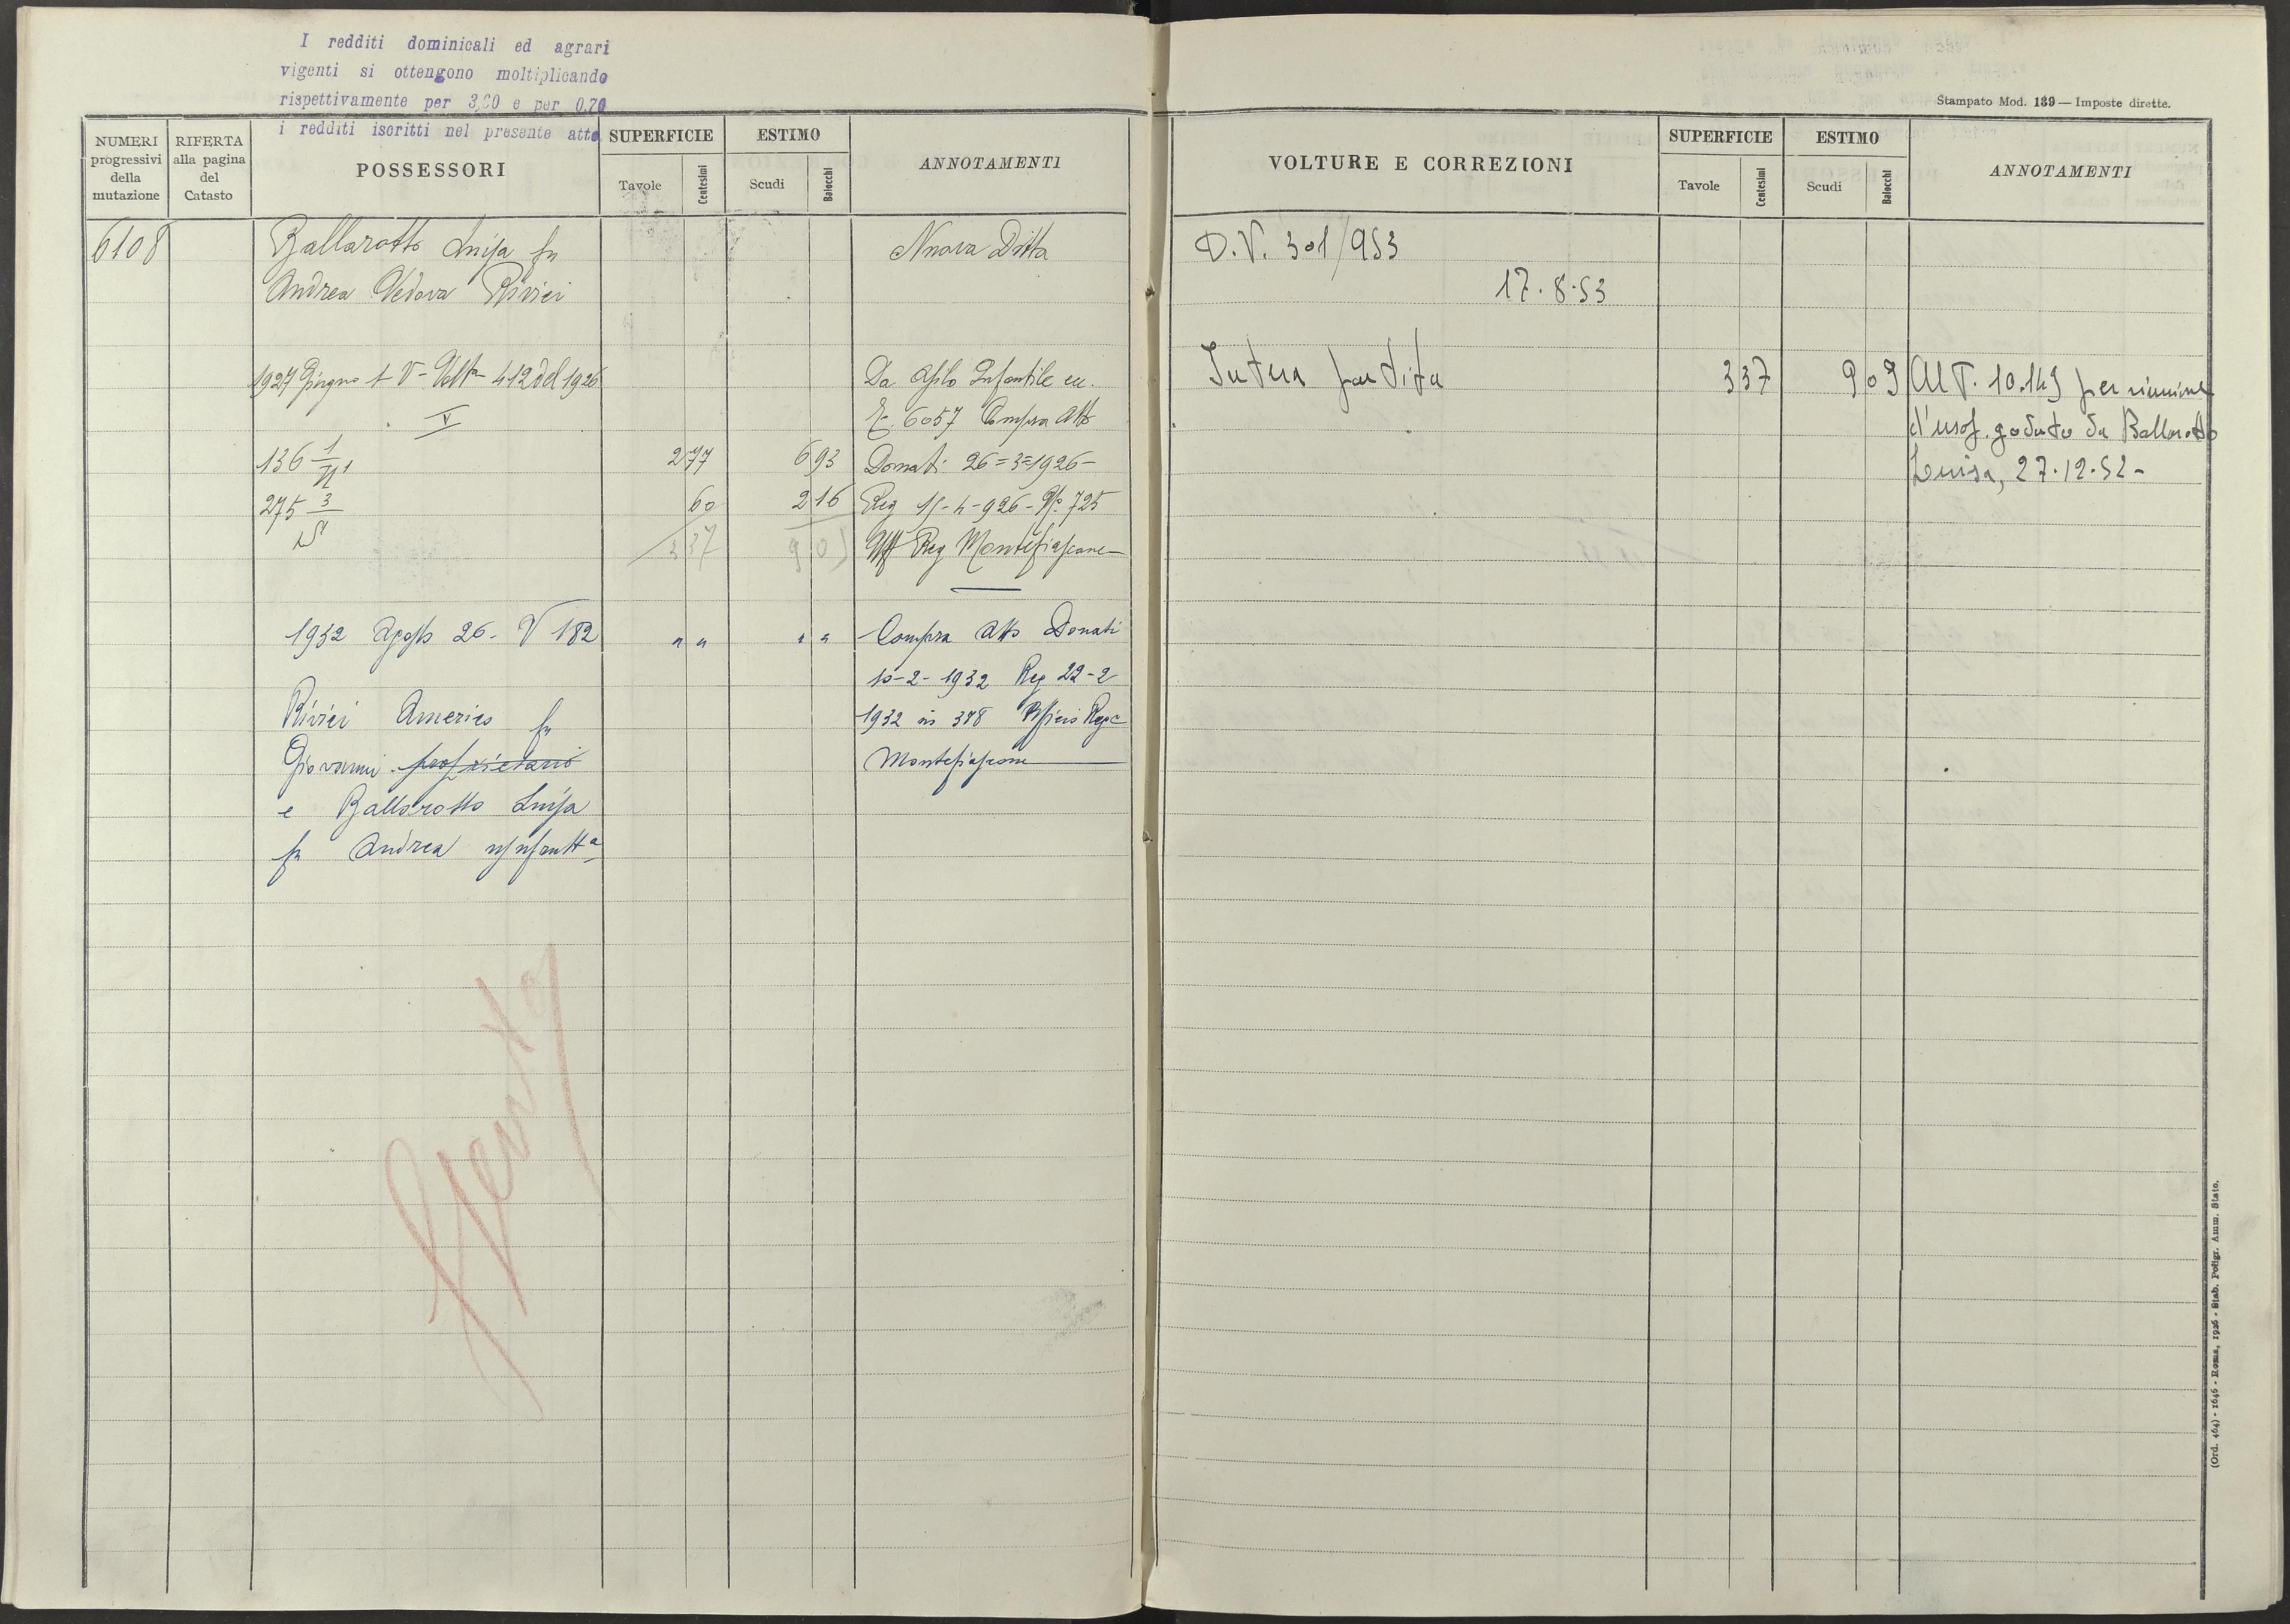 I redditi dominicali ed agrari
vigenti si ottengono moltiplicando
rispettivamente per 3,60 e per 0,70
i redditi iscritti nel presente atto
NUMERI
progressivi
della
mutazione
RIFERTA
alla pagina
del
Catasto
POSSESSORI
SUPERFICIE
Tavole
Centesimi
ESTIMO
Scudi
Baiocchi
ANNOTAMENTI
6108
Ballarotto Luisa fu
Andrea Vedova Rivici
Nuova Ditta
1927 Giugno 1 V - 412 del 1926
Da Asilo Infantile
6057 Compra Atto
V
136 1/II 1
2 77
6 93
Donati 26=3=1926-
275 3
60
2 16
Reg 15-4-926- No 725
3 37
9 09
Uff Reg Montefiascone
1932 Agosto 26 - V 182
" "
" "
Compra Atto Donati
10-2-1932 Reg 22-2
1932 No 378 Ufficio Rege
Montefiascone
Rivici Americo fu
Giovanni proprietario
e Ballarotto Luisa
fu Andrea usufrutta
Stampato Mod. 139 — Imposte dirette.
VOLTURE E CORREZIONI
SUPERFICIE
Tavole
Centesimi
ESTIMO
Scudi
Baiocchi
ANNOTAMENTI
D.V. 301/953
17.8.53
Intera partita
3 37
9 09
Al P. 10.149 per riunione
d'usof. goduto da Ballarotto
Luisa, 27.12.52-
(Ord. 464) - 1646 - Roma, 1926 - Stab. Poligr. Amm. Stato.